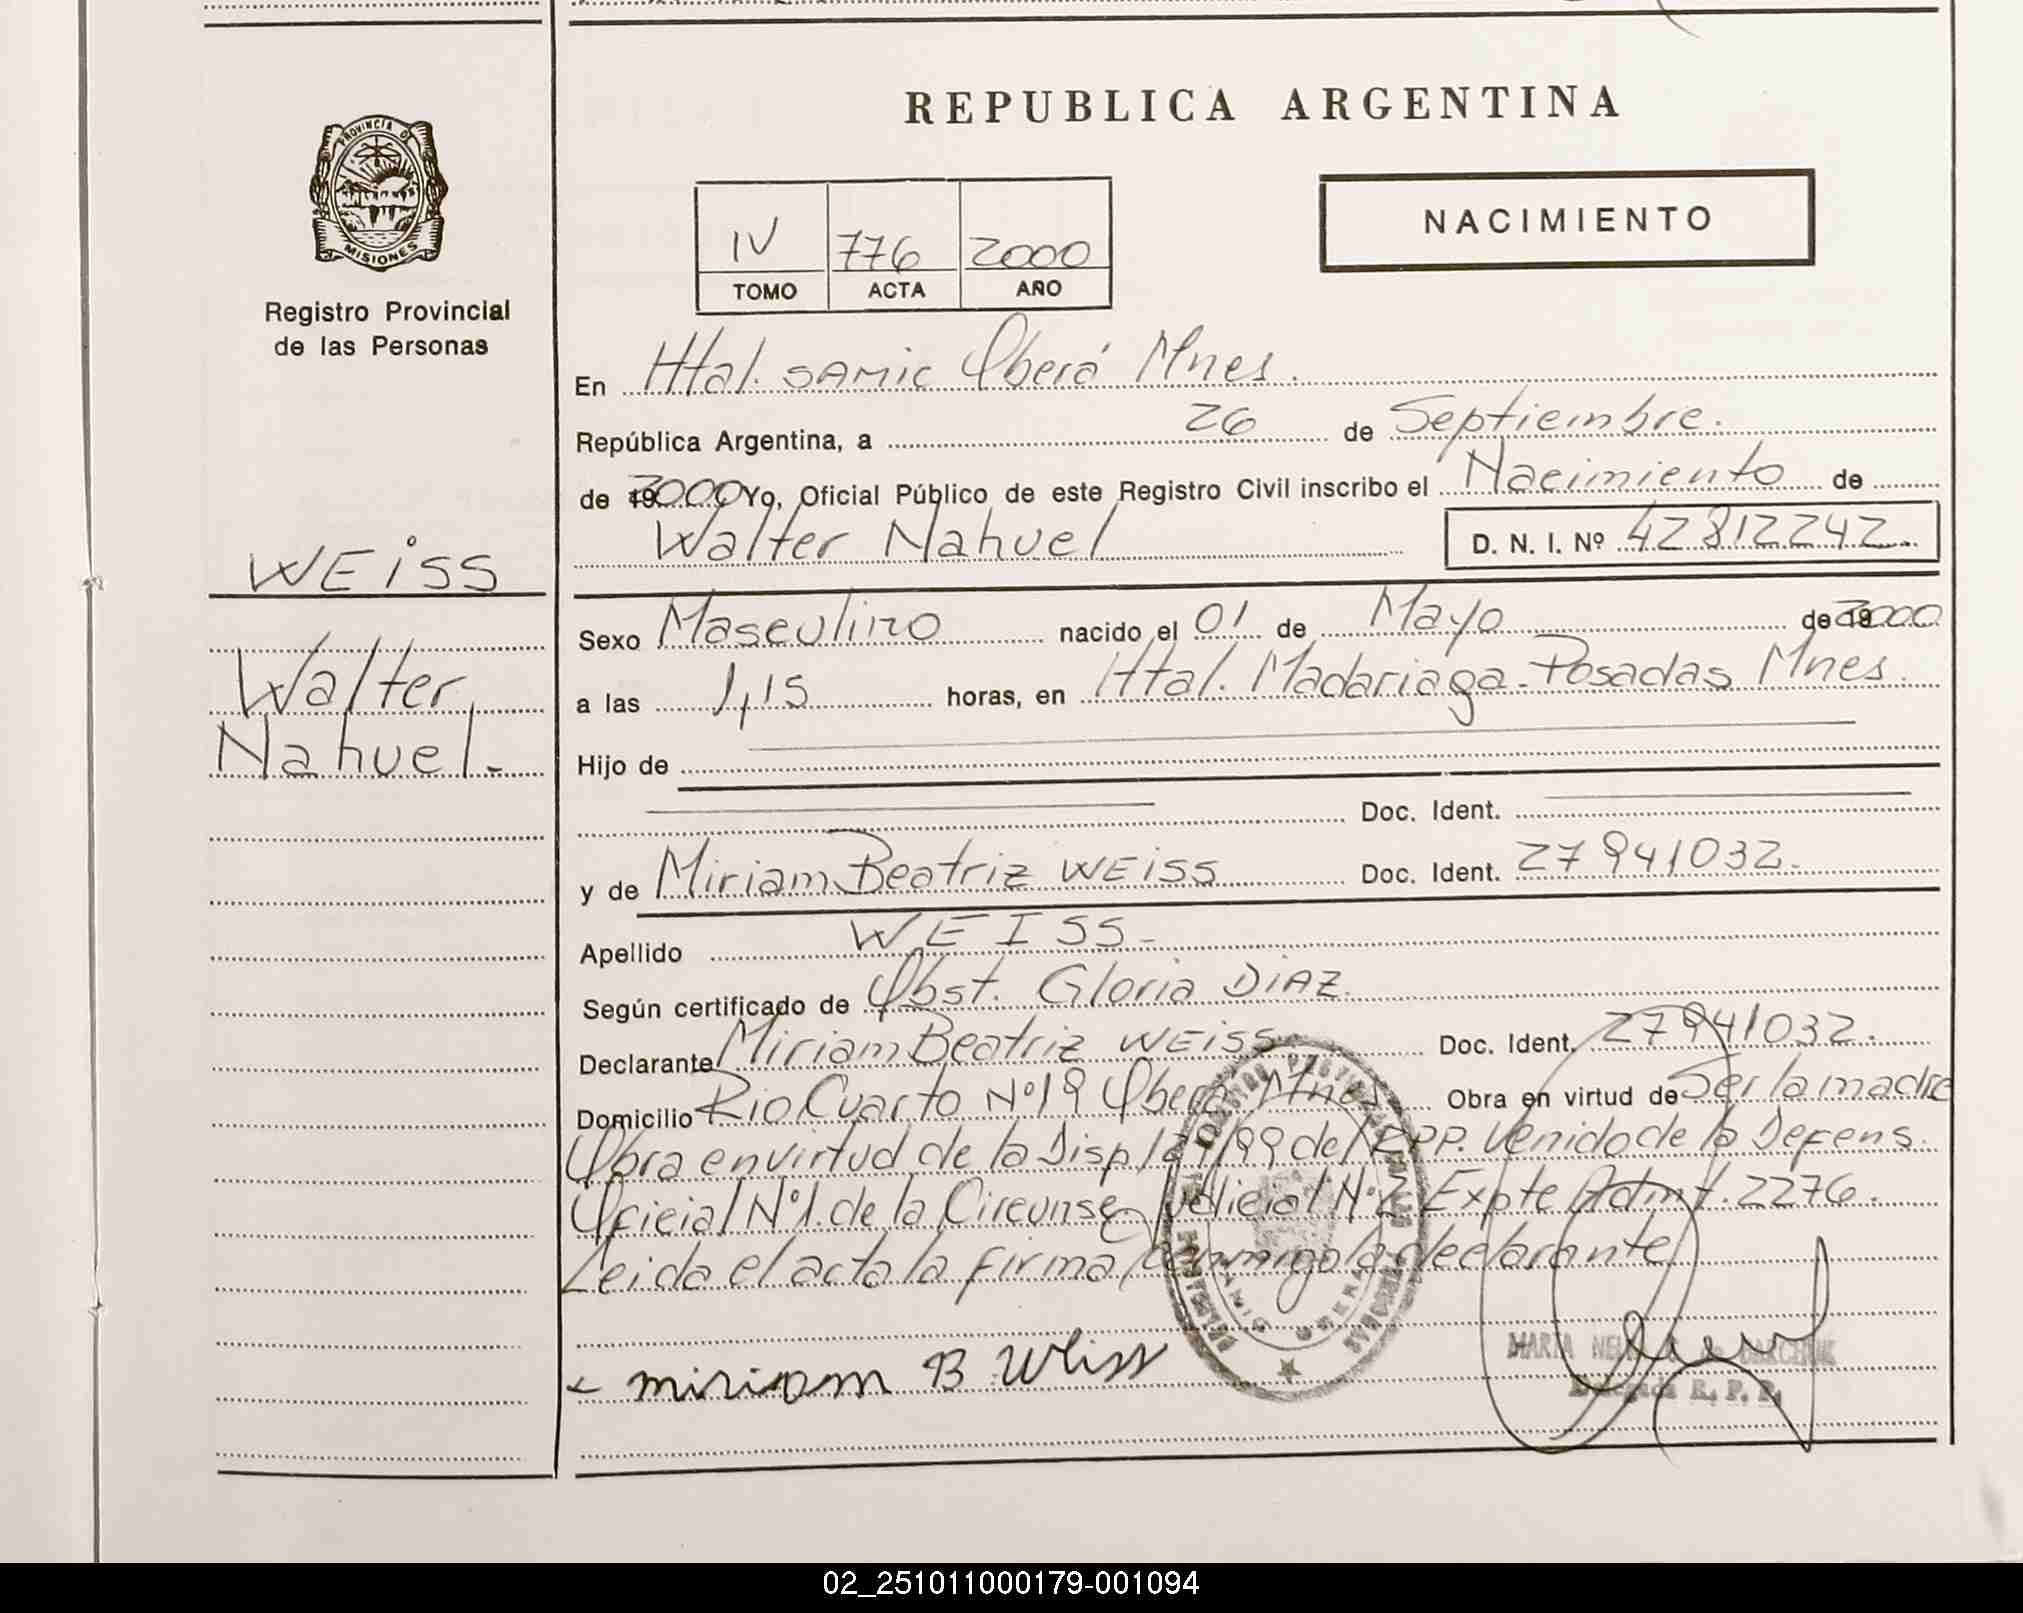 REPUBLICA ARGENTINA
PROVINCIA DE
MISIONES
Registro Provincial
de las Personas
IV 776 2000
TOMO ACTA AÑO
NACIMIENTO
En Htal. SAMIC Oberá Mnes.
República Argentina, a 26 de Septiembre.
de 2000 Yo, Oficial Público de este Registro Civil inscribo el Nacimiento de
Walter Nahuel D. N. I. Nº 42812242.
WEISS
Walter
Nahuel.-
Sexo Masculino nacido el 01 de Mayo de 2000
a las 1,15 horas, en Htal. Madariaga-Posadas Mnes.
Hijo de
Doc. Ident.
y de Miriam Beatriz WEISS Doc. Ident. 27941032.
Apellido WEISS-
Según certificado de Obst. Gloria DIAZ.
Declarante Miriam Beatriz WEISS. Doc. Ident. 27941032.
Domicilio Rio Cuarto Nº19 Oberá Mnes Obra en virtud de Ser la madre
Obra en virtud de la Disp 129/99 del RPP. Venido de la Defens.
Oficial Nº1. de la Circunsc. Judicial Nº2 Expte Admt. 2276.
Leida el acta la firma conmigo la declarante
miriam B Weiss
MARTA
Delegada R. P. P.
02_251011000179-001094